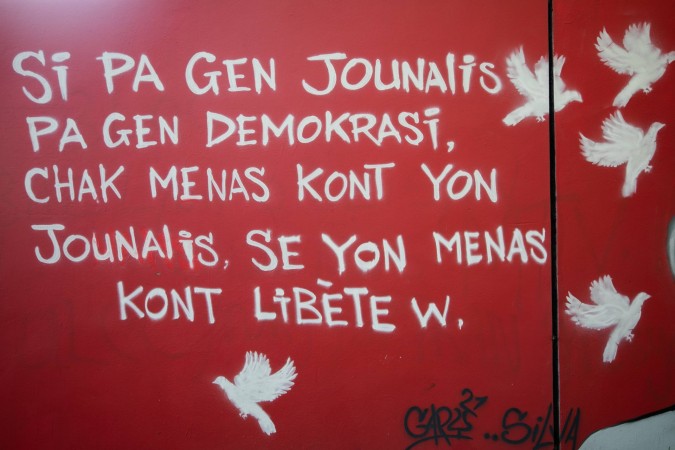 Si PA GEN JOUNALiS
PA GEN DEMOKRASi,
CHAK MENAS KONT YON
JOUNALiS, SE YON MENAS
KONT LiBÈTE W.